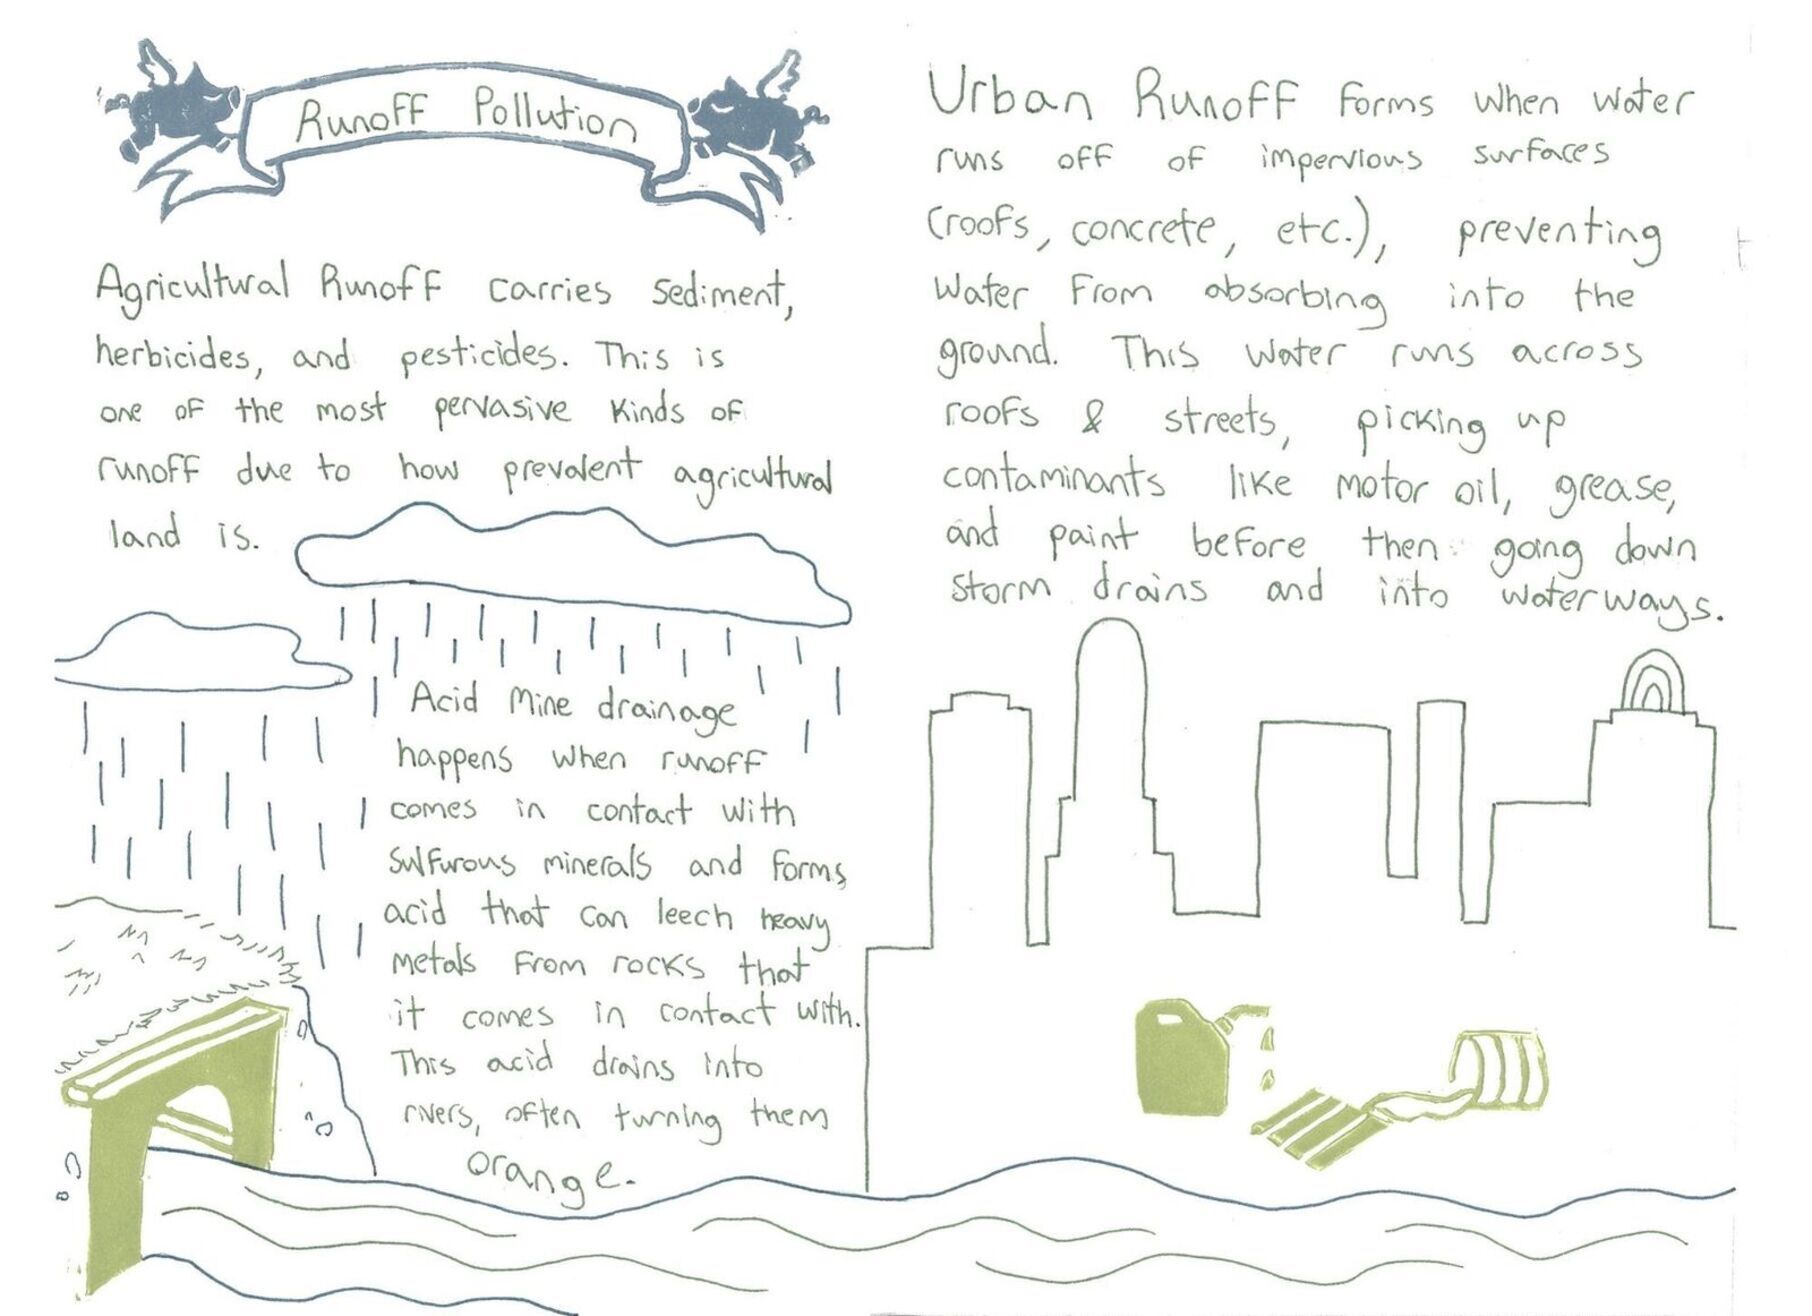 Runoff Pollution
Agricultural Runoff carries sediment,
herbicides, and pesticides. This is
one of the most pervasive kinds of
runoff due to how prevalent agricultural
land is.
Acid Mine drainage
happens when runoff
comes in contact with
sulfurous minerals and forms
acid that can leech heavy
metals from rocks that
it comes in contact with.
This acid drains into
rivers, often turning them
orange.
Urban Runoff forms when water
runs off of impervious surfaces
(roofs, concrete, etc.), preventing
water from absorbing into the
ground. This water runs across
roofs & streets, picking up
contaminants like motor oil, grease,
and paint before then going down
storm drains and into waterways.